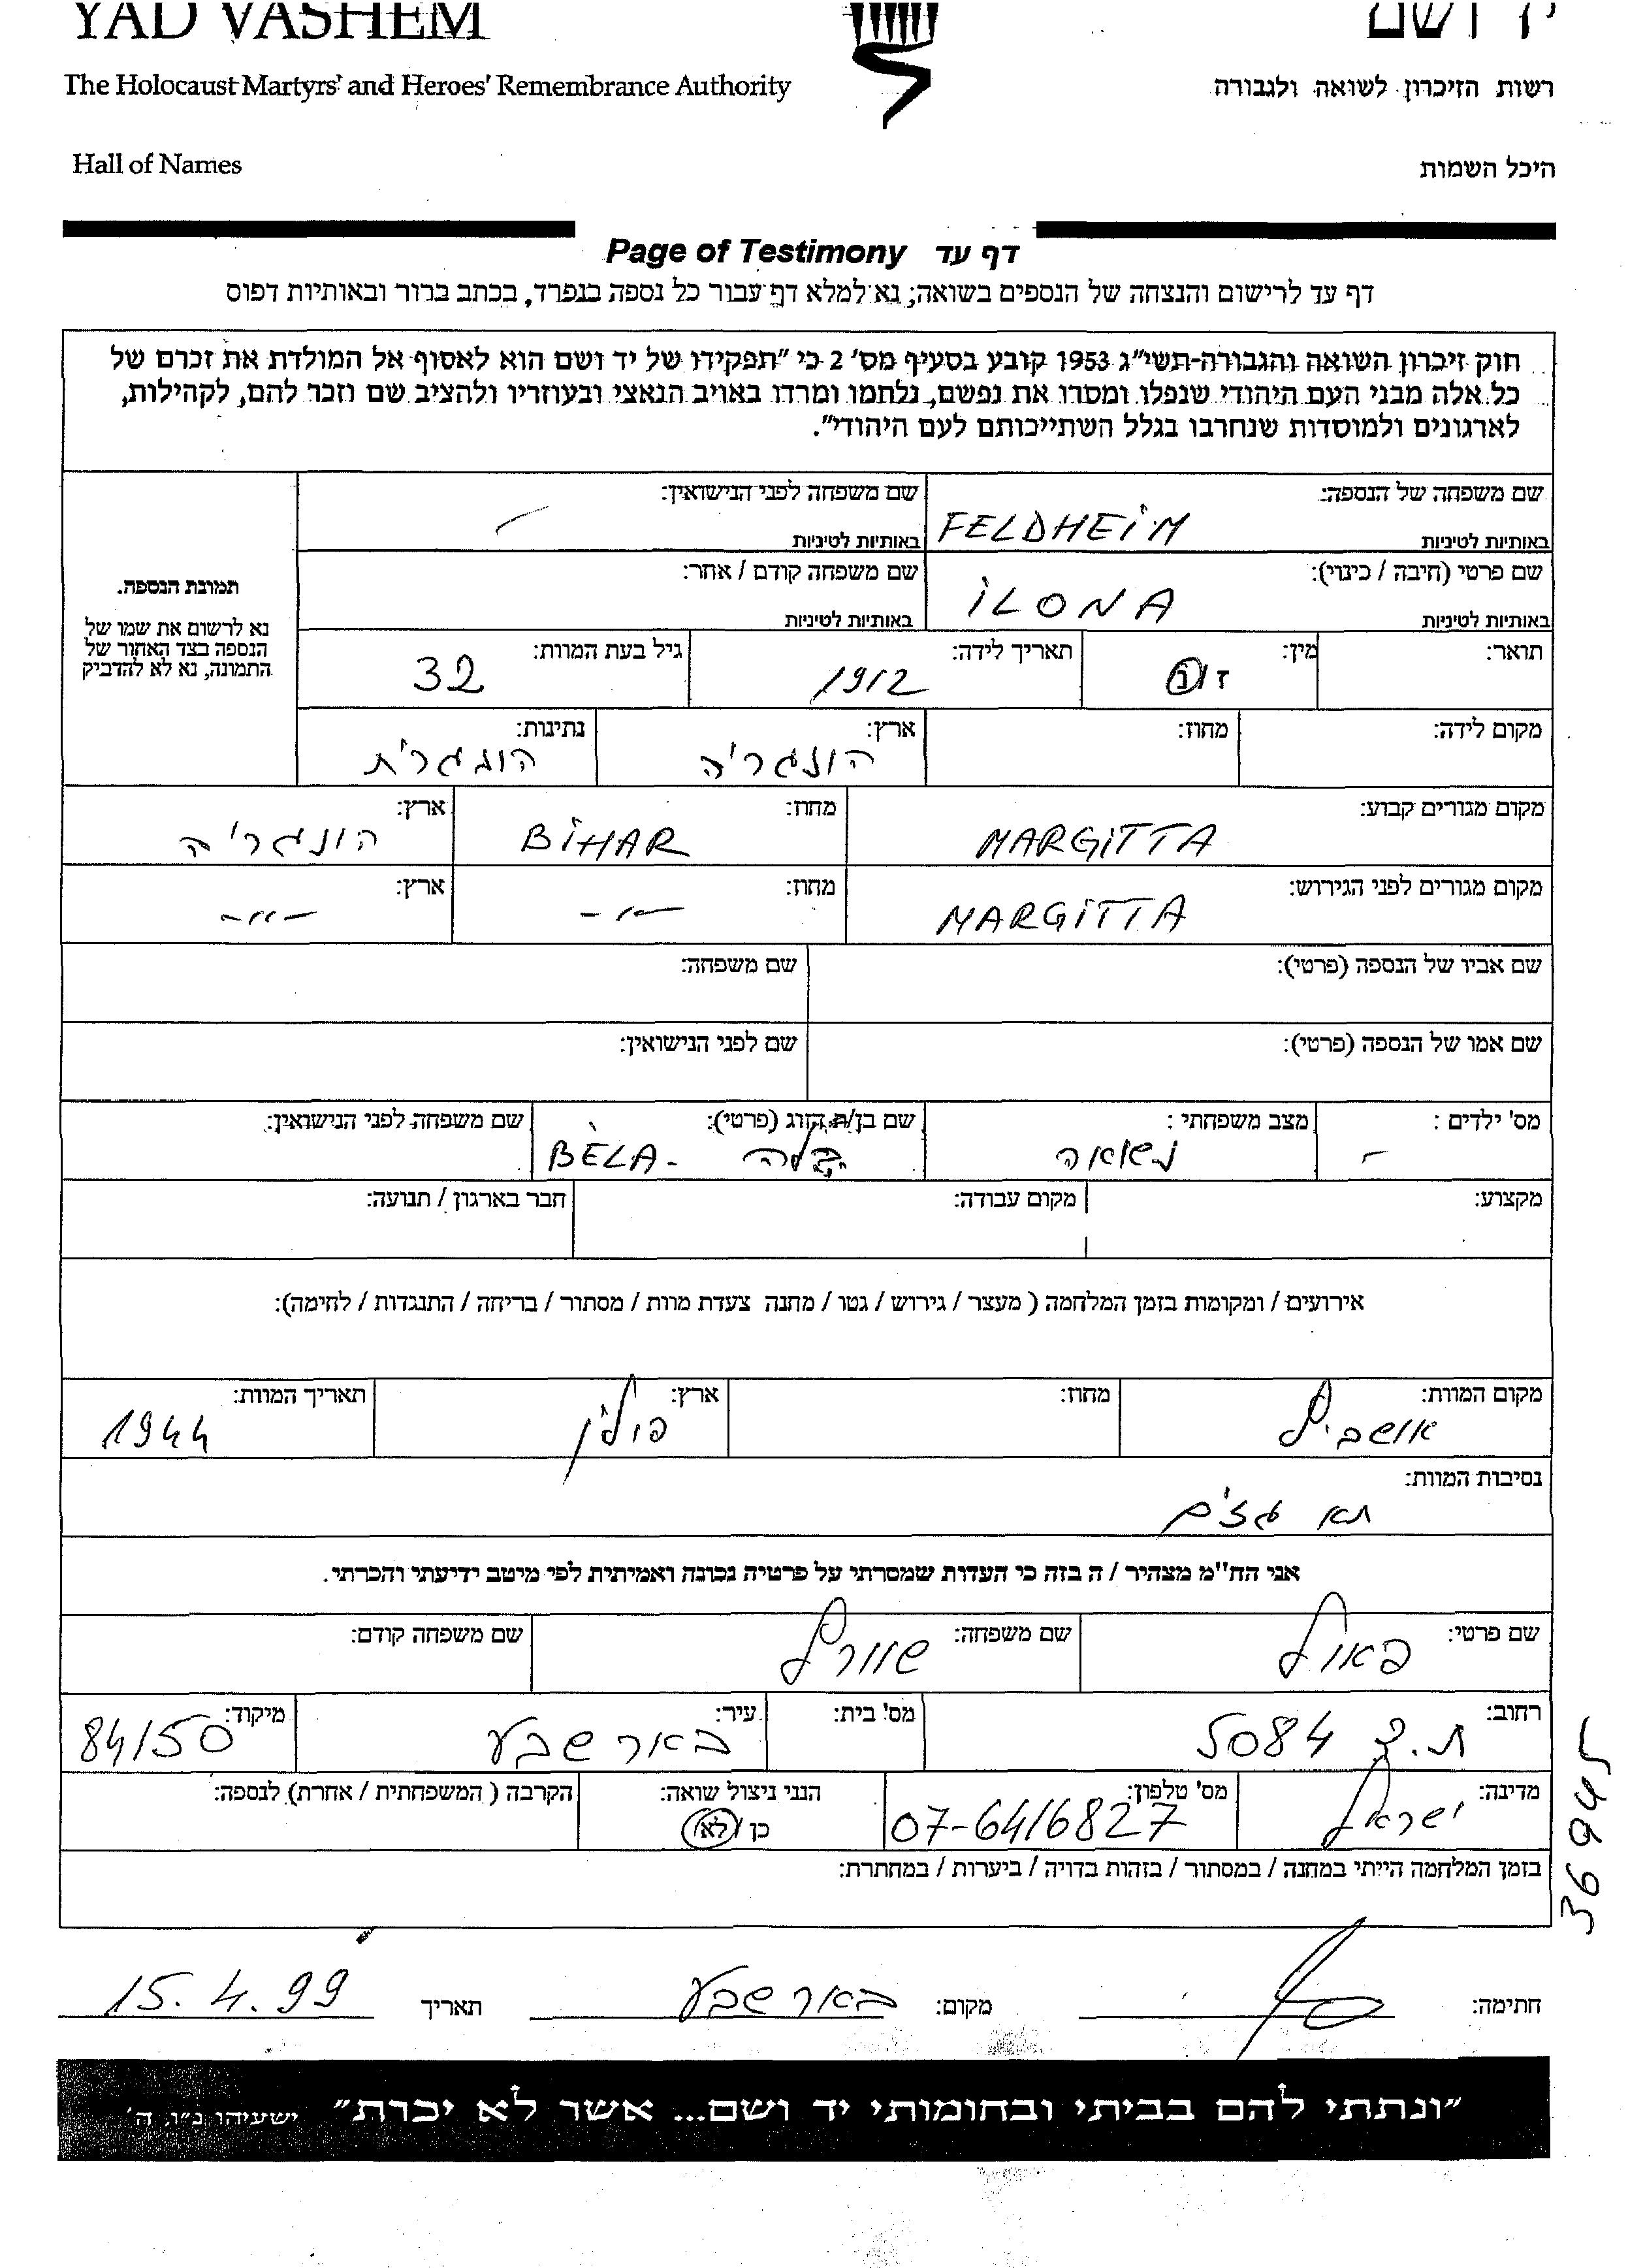 YAD VASHEM
יד ושם
The Holocaust Martyrs' and Heroes' Remembrance Authority
רשות הזיכרון לשואה ולגבורה
Hall of Names
היכל השמות
Page of Testimony דף עד
דף עד לרישום והנצחה של הנספים בשואה; נא למלא דף עבור כל נספה בנפרד, בכתב ברור ובאותיות דפוס
חוק זיכרון השואה והגבורה-תשי"ג 1953 קובע בסעיף מס' 2 כי "תפקידו של יד ושם הוא לאסוף אל המולדת את זכרם של
כל אלה מבני העם היהודי שנפלו ומסרו את נפשם, נלחמו ומרדו באויב הנאצי ובעוזריו ולהציב שם וזכר להם, לקהילות,
לארגונים ולמוסדות שנחרבו בגלל השתייכותם לעם היהודי".
שם משפחה של הנספה: באותיות לטיניות FELDHEIM
שם משפחה לפני הנישואין: באותיות לטיניות –
שם פרטי (חיבה / כינוי): באותיות לטיניות ILONA
שם משפחה קודם / אחר: באותיות לטיניות
תמונת הנספה.
נא לרשום את שמו של
הנספה בצד האחור של
התמונה, נא לא להדביק
תואר:
מין: ז / נ
תאריך לידה: 1912
גיל בעת המוות: 32
מקום לידה:
מחוז:
ארץ: הונגריה
נתינות: הונגרית
מקום מגורים קבוע: MARGITTA
מחוז: BIHAR
ארץ: הונגריה
מקום מגורים לפני הגירוש: MARGITTA
מחוז: –"–
ארץ: –"–
שם אביו של הנספה (פרטי):
שם משפחה:
שם אמו של הנספה (פרטי):
שם לפני הנישואין:
מס' ילדים : –
מצב משפחתי : נשואה
שם בן/ת הזוג (פרטי): בלה - BÉLA
שם משפחה לפני הנישואין:
מקצוע:
מקום עבודה:
חבר בארגון / תנועה:
אירועים / ומקומות בזמן המלחמה ( מעצר / גירוש / גטו / מחנה צעדת מוות / מסתור / בריחה / התנגדות / לחימה):
מקום המוות: אושביץ
מחוז:
ארץ: פולין
תאריך המוות: 1944
נסיבות המוות:
תא גזים
אני הח"מ מצהיר / ה בזה כי העדות שמסרתי על פרטיה נכונה ואמיתית לפי מיטב ידיעתי והכרתי.
שם פרטי: פאול
שם משפחה: שוורץ
שם משפחה קודם:
רחוב: ת.ד 5084
מס' בית:
עיר: באר שבע
מיקוד: 84150
מדינה: ישראל
מס' טלפון: 07-6416827
הנני ניצול שואה: כן / לא
הקרבה ( המשפחתית / אחרת) לנספה:
בזמן המלחמה הייתי במחנה / במסתור / בזהות בדויה / ביערות / במחתרת:
36945
חתימה:
מקום: באר שבע
תאריך 15.4.99
"ונתתי להם בביתי ובחומותי יד ושם... אשר לא יכרת" ישעיהו נ"ו, ה'